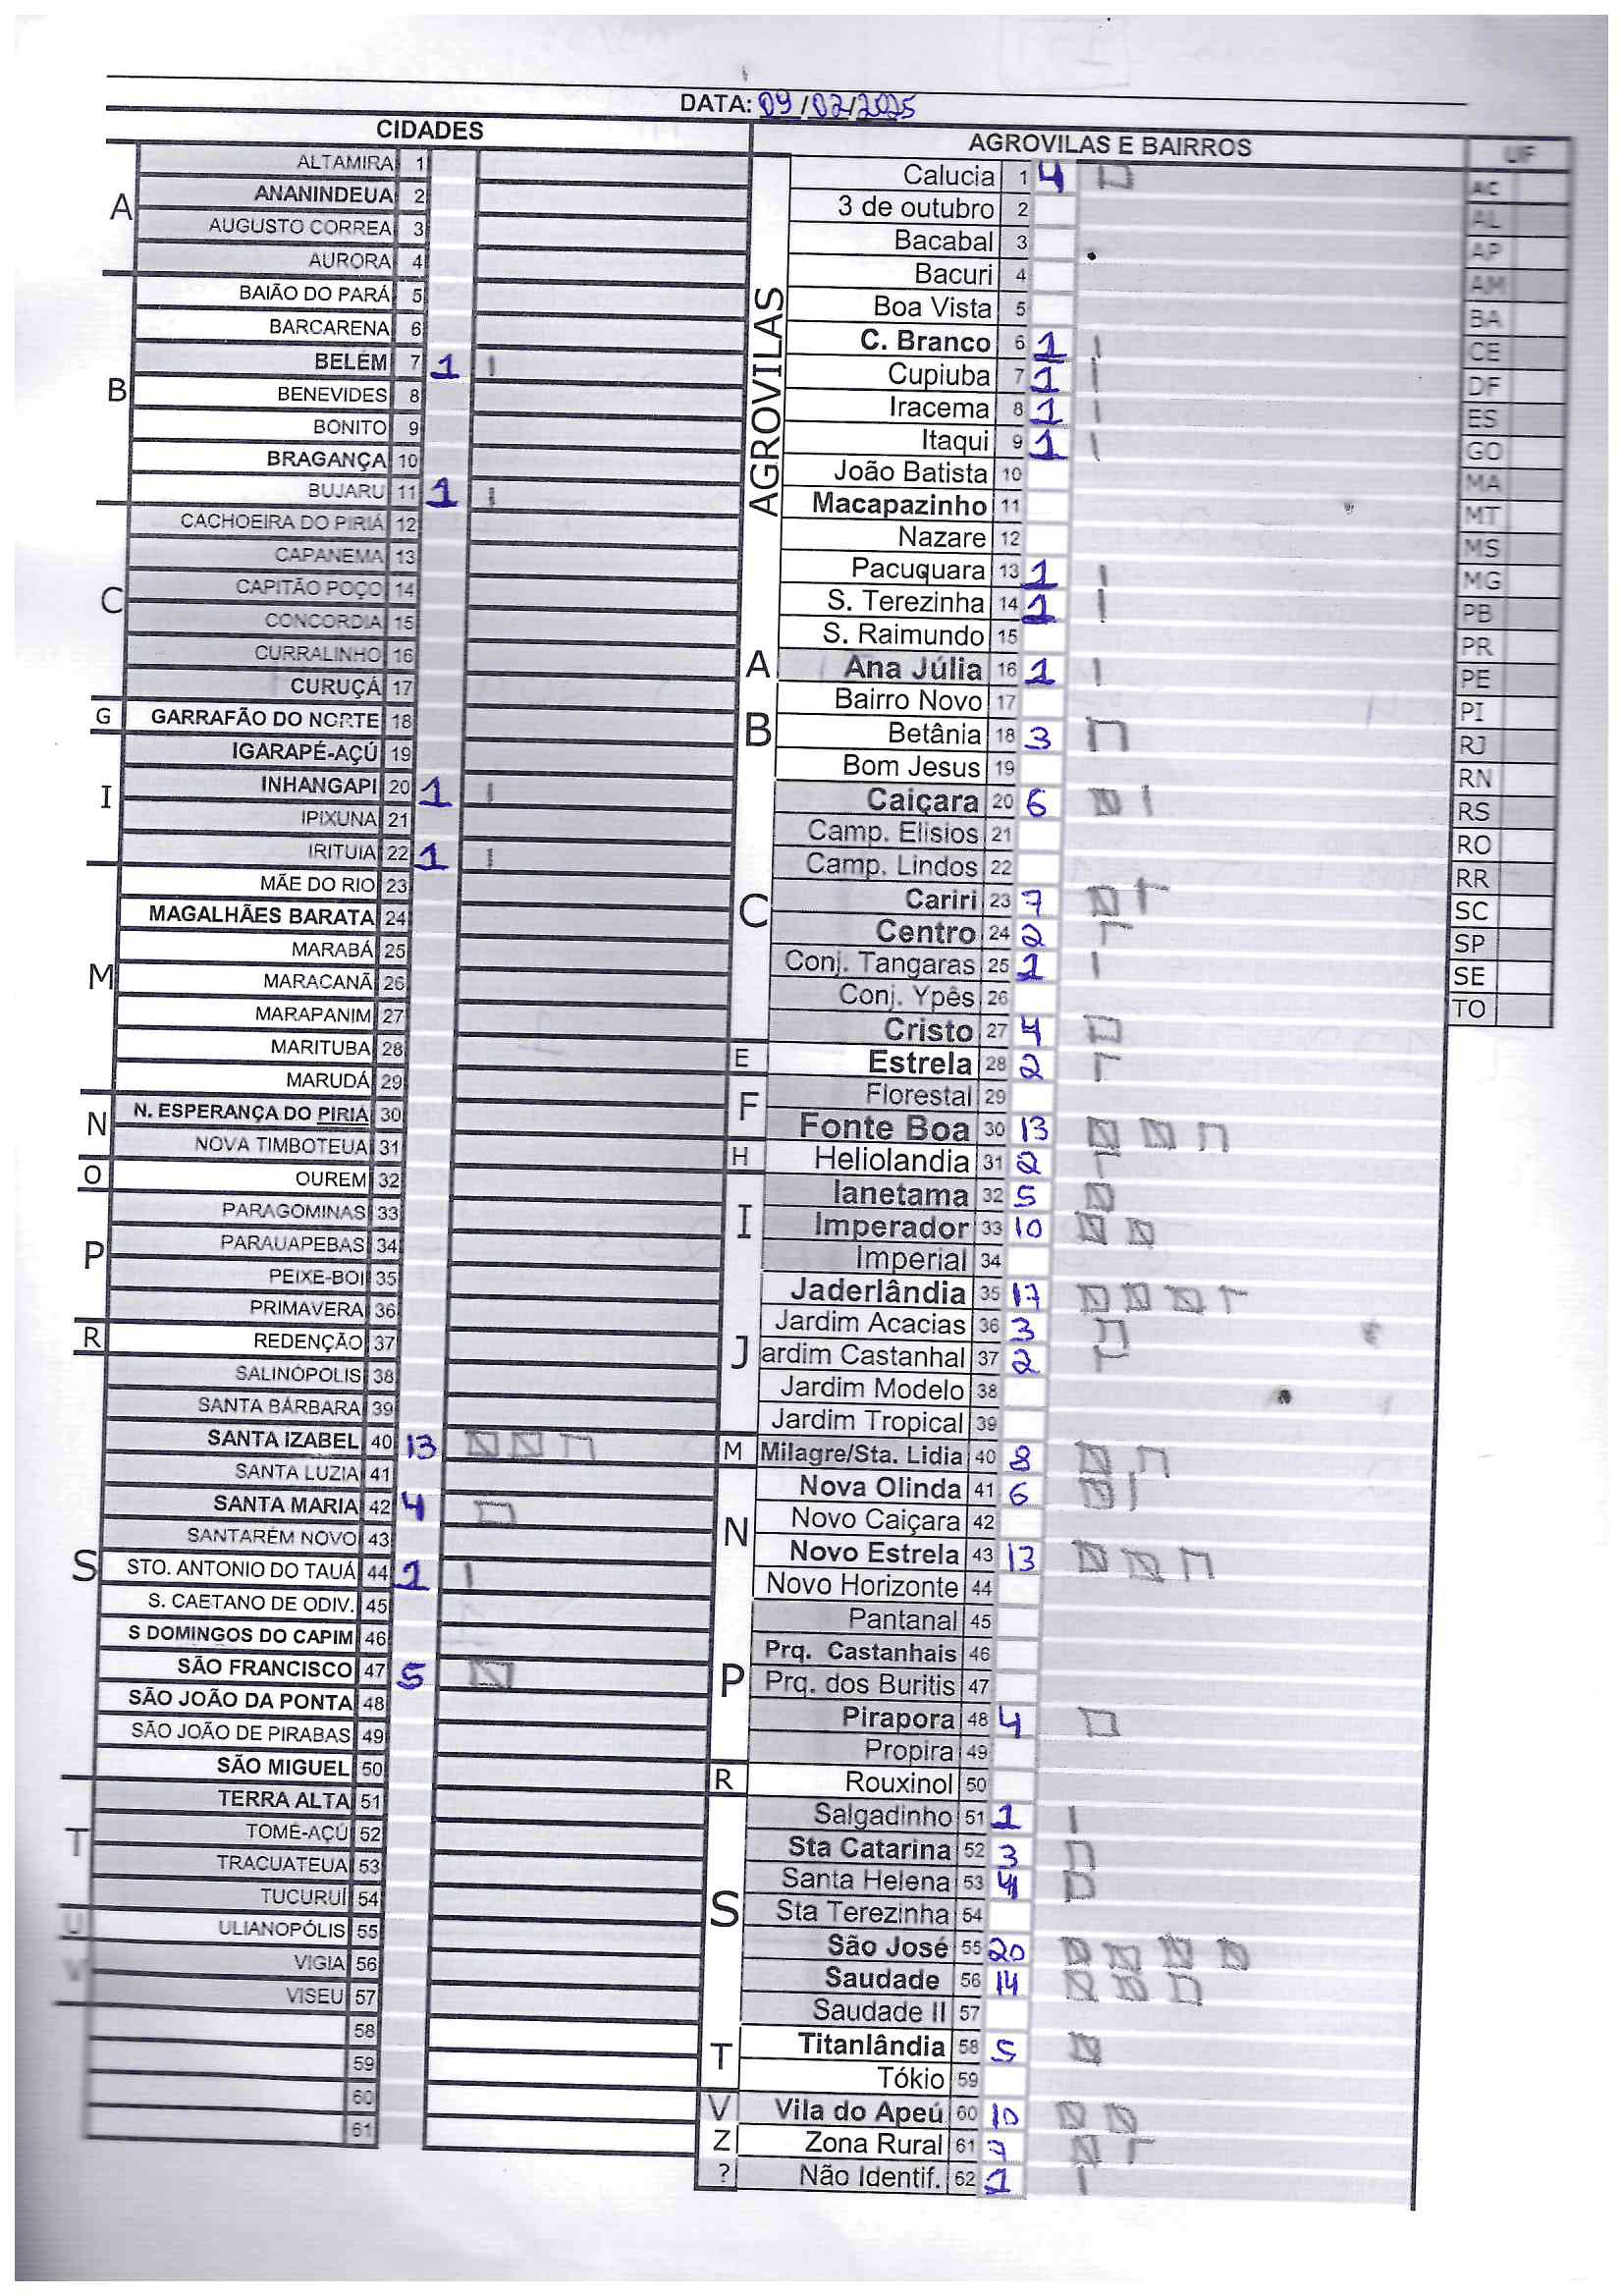 DATA: 09/02/2025
CIDADES
A
ALTAMIRA 1
ANANINDEUA 2
AUGUSTO CORREA 3
AURORA 4
B
BAIÃO DO PARÁ 5
BARCARENA 6
BELÉM 7 1
BENEVIDES 8
BONITO 9
BRAGANÇA 10
BUJARU 11 1
C
CACHOEIRA DO PIRIÁ 12
CAPANEMA 13
CAPITÃO POÇO 14
CONCORDIA 15
CURRALINHO 16
CURUÇÁ 17
G GARRAFÃO DO NORTE 18
I
IGARAPÉ-AÇÚ 19
INHANGAPI 20 1
IPIXUNA 21
IRITUIA 22 1
M
MÃE DO RIO 23
MAGALHÃES BARATA 24
MARABÁ 25
MARACANÃ 26
MARAPANIM 27
MARITUBA 28
MARUDÁ 29
N
N. ESPERANÇA DO PIRIÁ 30
NOVA TIMBOTEUA 31
O OUREM 32
P
PARAGOMINAS 33
PARAUAPEBAS 34
PEIXE-BOI 35
PRIMAVERA 36
R REDENÇÃO 37
S
SALINÓPOLIS 38
SANTA BÁRBARA 39
SANTA IZABEL 40 13
SANTA LUZIA 41
SANTA MARIA 42 4
SANTARÉM NOVO 43
STO. ANTONIO DO TAUÁ 44 1
S. CAETANO DE ODIV. 45
S DOMINGOS DO CAPIM 46
SÃO FRANCISCO 47 5
SÃO JOÃO DA PONTA 48
SÃO JOÃO DE PIRABAS 49
SÃO MIGUEL 50
T
TERRA ALTA 51
TOMÉ-AÇÚ 52
TRACUATEUA 53
TUCURUÍ 54
U ULIANOPÓLIS 55
V
VIGIA 56
VISEU 57
58
59
60
61
AGROVILAS E BAIRROS
AGROVILAS
Calucia 1 4
3 de outubro 2
Bacabal 3
Bacuri 4
Boa Vista 5
C. Branco 6 1
Cupiuba 7 1
Iracema 8 1
Itaqui 9 1
João Batista 10
Macapazinho 11
Nazare 12
Pacuquara 13 1
S. Terezinha 14 1
S. Raimundo 15
A Ana Júlia 16 1
B
Bairro Novo 17
Betânia 18 3
Bom Jesus 19
C
Caiçara 20 6
Camp. Elisios 21
Camp. Lindos 22
Cariri 23 7
Centro 24 2
Conj. Tangaras 25 1
Conj. Ypês 26
Cristo 27 4
E Estrela 28 2
F
Florestal 29
Fonte Boa 30 13
H Heliolandia 31 2
I
Ianetama 32 5
Imperador 33 10
Imperial 34
J
Jaderlândia 35 17
Jardim Acacias 36 3
ardim Castanhal 37 2
Jardim Modelo 38
Jardim Tropical 39
M Milagre/Sta. Lidia 40 8
N
Nova Olinda 41 6
Novo Caiçara 42
Novo Estrela 43 13
Novo Horizonte 44
P
Pantanal 45
Prq. Castanhais 46
Prq. dos Buritis 47
Pirapora 48 4
Propira 49
R Rouxinol 50
S
Salgadinho 51 1
Sta Catarina 52 3
Santa Helena 53 4
Sta Terezinha 54
São José 55 20
Saudade 56 14
Saudade II 57
T
Titanlândia 58 5
Tókio 59
V Vila do Apeú 60 10
Z Zona Rural 61 7
? Não Identif. 62 1
UF
AC
AL
AP
AM
BA
CE
DF
ES
GO
MA
MT
MS
MG
PB
PR
PE
PI
RJ
RN
RS
RO
RR
SC
SP
SE
TO